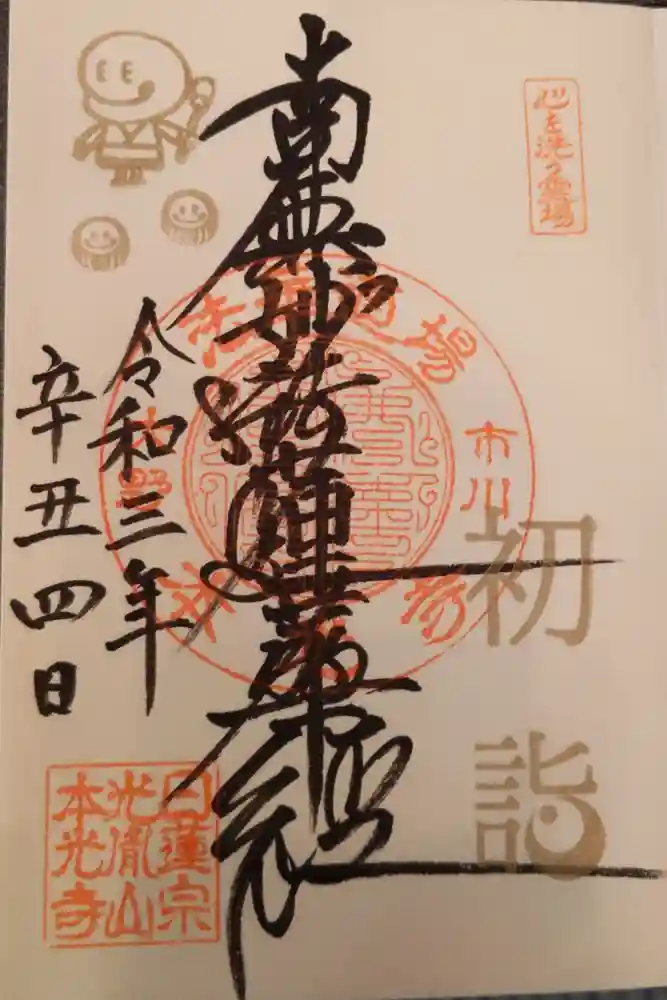 心を洗う霊場
初詣
南無妙法蓮華経
市川
令和三年
辛丑 四日
日蓮宗
光胤山
本光寺